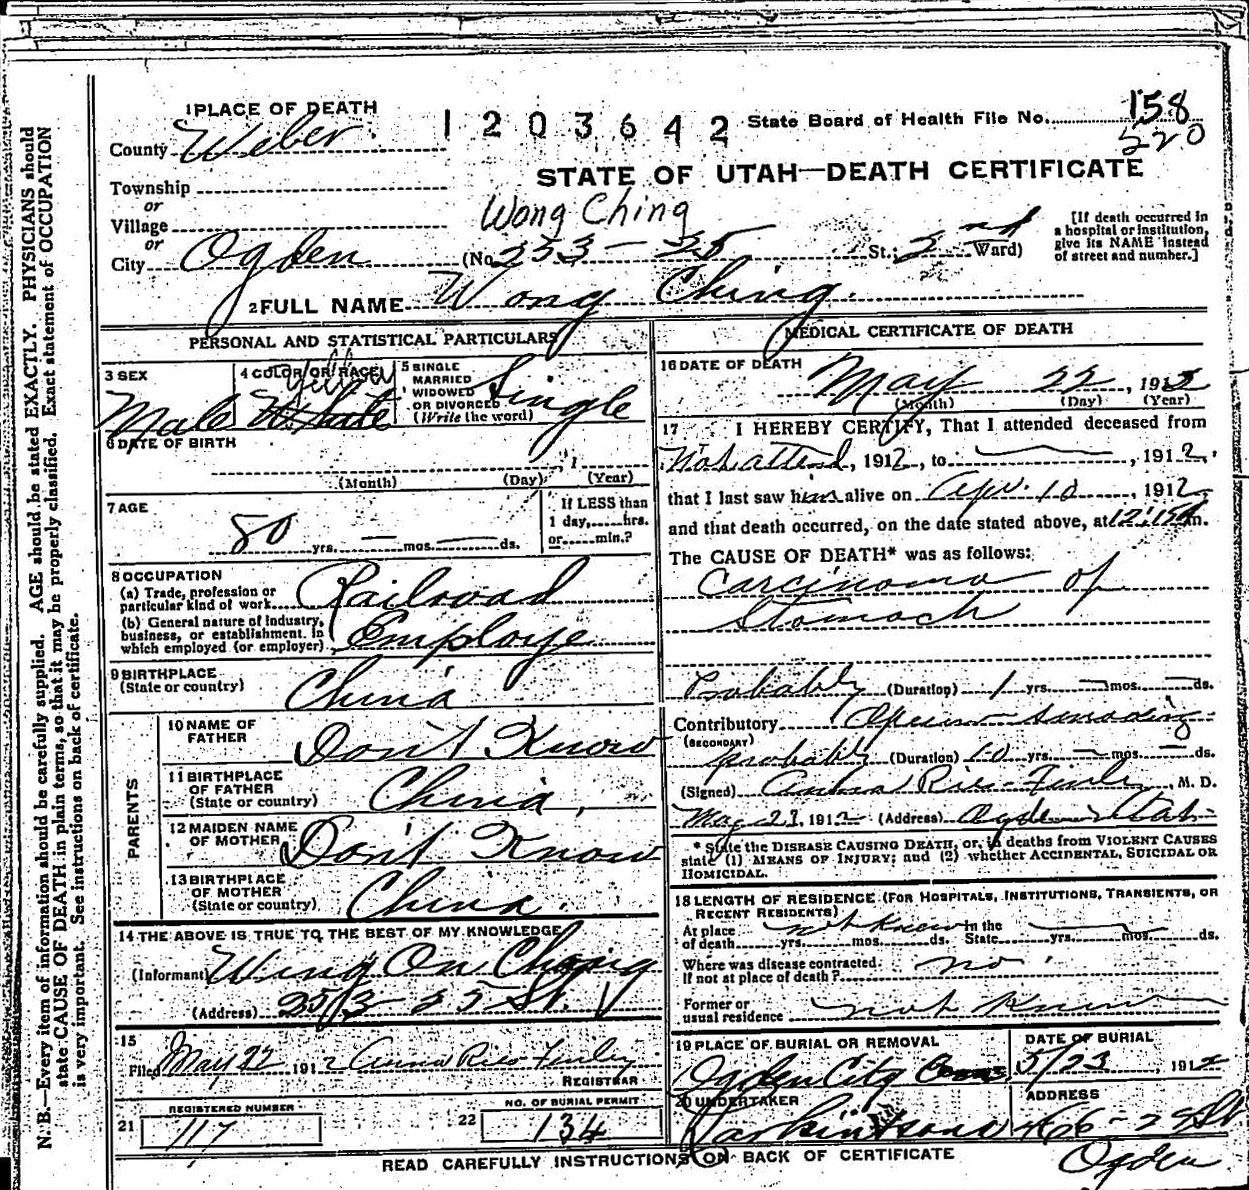 1 PLACE OF DEATH
1203642 State Board of Health File No. 158
220
County Weber
STATE OF UTAH—DEATH CERTIFICATE
Township
or
Village
Wong Ching
or
City Ogden (No. 253 - 25 St.; 2nd Ward)
[If death occurred in a hospital or institution, give its NAME instead of street and number.]
2 FULL NAME Wong Ching.
PERSONAL AND STATISTICAL PARTICULARS
3 SEX
Male
4 COLOR OR RACE
Yellow
White
5 SINGLE MARRIED WIDOWED OR DIVORCED (Write the word)
Single
6 DATE OF BIRTH
, 1
(Month) (Day) (Year)
7 AGE
80 yrs. — mos. — ds.
If LESS than 1 day, hrs. or min.?
8 OCCUPATION
(a) Trade, profession or particular kind of work Railroad
(b) General nature of industry, business, or establishment in which employed (or employer) Employe
9 BIRTHPLACE
(State or country) China
PARENTS
10 NAME OF FATHER Don't Know
11 BIRTHPLACE OF FATHER (State or country) China.
12 MAIDEN NAME OF MOTHER Don't Know
13 BIRTHPLACE OF MOTHER (State or country) China.
14 THE ABOVE IS TRUE TO THE BEST OF MY KNOWLEDGE
(Informant) Wing On Chong
(Address) 253 - 25 St.
15
Filed May 22 1912 Anna Ries-Finley
REGISTRAR
21 REGISTERED NUMBER 117
22 NO. OF BURIAL PERMIT 134
MEDICAL CERTIFICATE OF DEATH
16 DATE OF DEATH
May 22, 1912
(Month) (Day) (Year)
17 I HEREBY CERTIFY, That I attended deceased from
Not attend, 1912, to —, 1912,
that I last saw him alive on Apr. 10, 1912,
and that death occurred, on the date stated above, at 12:15 A m.
The CAUSE OF DEATH* was as follows:
Carcinoma of
Stomach
Probably (Duration) 1 yrs. — mos. — ds.
Contributory Opium smoking
(SECONDARY)
probably (Duration) 10 yrs. — mos. — ds.
(Signed) Anna Ries-Finley, M. D.
May 23, 1912 (Address) Ogden Utah
* State the DISEASE CAUSING DEATH, or, in deaths from VIOLENT CAUSES
state (1) MEANS OF INJURY; and (2) whether ACCIDENTAL, SUICIDAL OR
HOMICIDAL.
18 LENGTH OF RESIDENCE (FOR HOSPITALS, INSTITUTIONS, TRANSIENTS, OR
RECENT RESIDENTS)
At place of death not know yrs. mos. ds. In the State yrs. mos. ds.
Where was disease contracted. If not at place of death? no.
Former or usual residence not know
19 PLACE OF BURIAL OR REMOVAL
Ogden City Cem
DATE OF BURIAL
5/23, 1912
20 UNDERTAKER
ADDRESS
466 - 25 St
Ogden
READ CAREFULLY INSTRUCTIONS ON BACK OF CERTIFICATE
N. B.—Every item of information should be carefully supplied. AGE should be stated EXACTLY. PHYSICIANS should
state CAUSE OF DEATH in plain terms, so that it may be properly classified. Exact statement of OCCUPATION
is very important. See instructions on back of certificate.